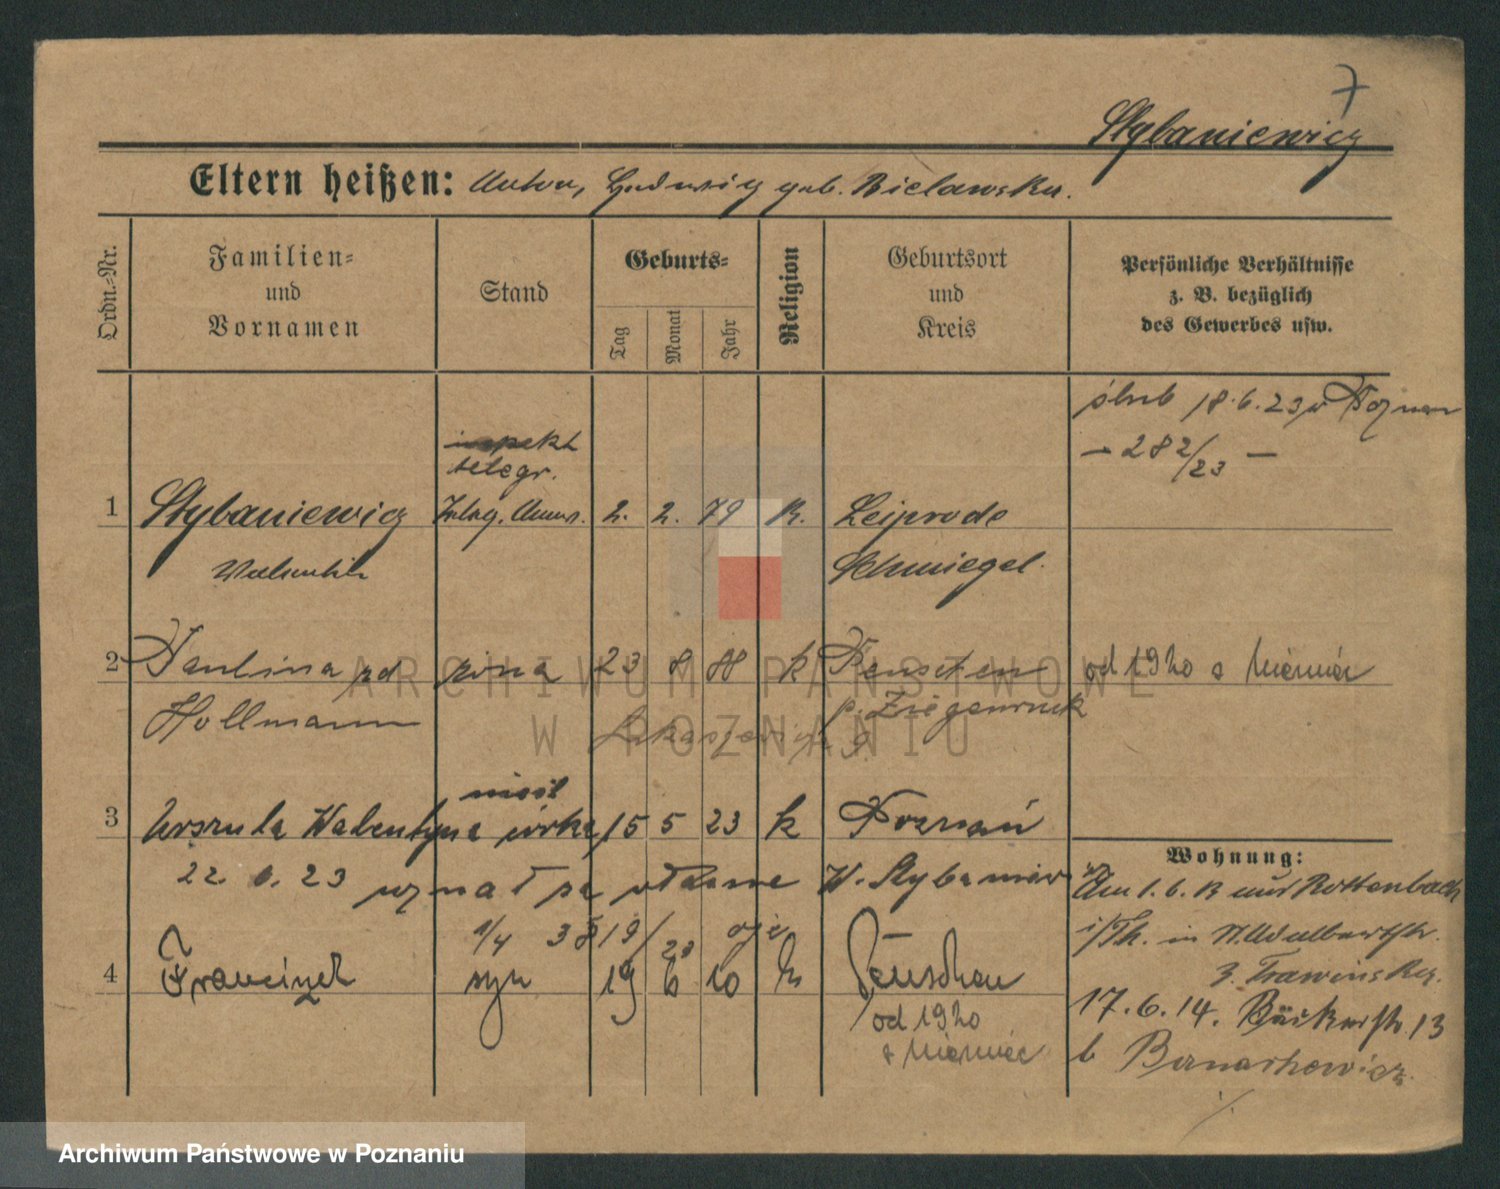 7
Stybaniewicz
Eltern heißen: Anton, Hedwig geb. Bielawska.
Ordn.-Nr.
Familien-
und
Vornamen
Stand
Geburts-
Tag
Monat
Jahr
Religion
Geburtsort
und
Kreis
Persönliche Verhältnisse
z. B. bezüglich
des Gewerbes usw.
ślub 18.6.23 w Poznan
– 282/23 –
inspekt
telegr.
1 Stybaniewicz 2. 2. 79 K. Leiprode
Schmiegel.
2 Paulina zd żona 23 8 88 k od 1920 z Niemiec
Hollmann p. Ziegenrück
Łukaszewicza 9
3 Urszula Walentyna córka 15 5 23 k Poznań
22. 6. 23 uznał za własne W. Stybaniewicz
1/4 3819/23
4 Franciszek syn 19 6 10 k Peuschen
od 1920
z Niemiec
Wohnung:
Am 1.6.13 aus Rottenbach
i/Th. in
17.6.14. Bäckerstr. 13
b
ARCHIWUM PAŃSTWOWE
W POZNANIU
Archiwum Państwowe w Poznaniu